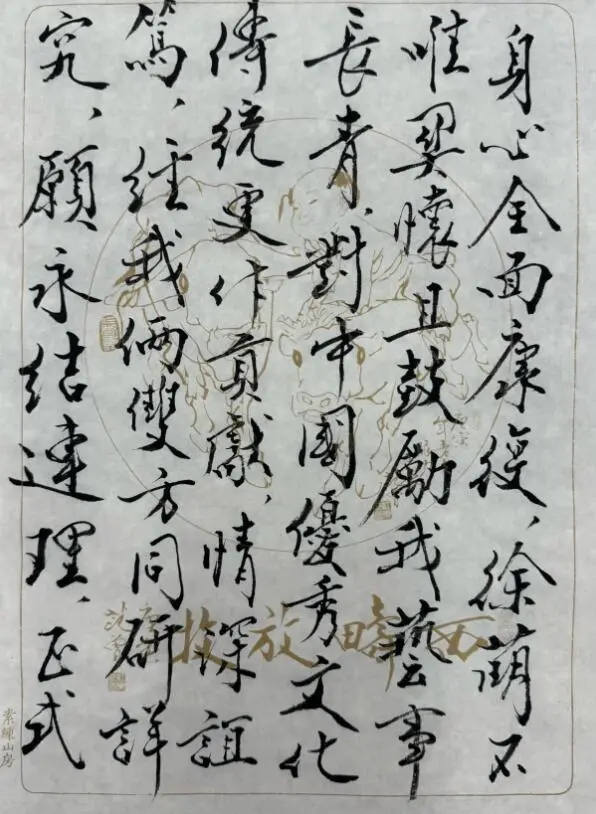 身心全面康復，徐萌不
唯契懷且鼓勵我藝事
長青，對中國優秀文化
傳統更作貢獻，情深誼
篤，經我倆雙方同研詳
究，願永結連理，正式
西疇放牧
索練山房